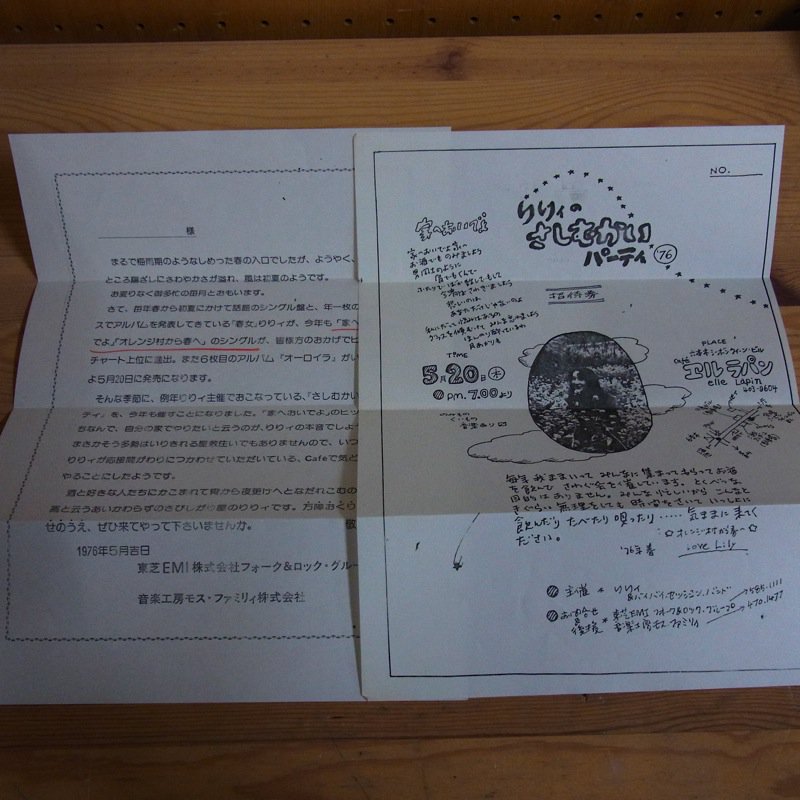 様
まるで梅雨期のようなしめった春の入口でしたが、ようやく、
ところ陽ざしにさわやかさが溢れ、風は初夏のようです。
お変りなく御多忙の毎日とおもいます。
さて、毎年春から初夏にかけて話題のシングル盤と、年一枚の
スでアルバムを発表してきている「春女」りりィが、今年も「家へ
でよ」「オレンジ村から春へ」のシングルが、皆様方のおかげでヒ
チャート上位に進出。また6枚目のアルバム「オーロイラ」がい
よ5月20日に発売になります。
そんな季節に、例年りりィ主催でおこなっている、「さしむかい
ティ」を、今年も催すことになりました。「家へおいでよ」のヒッ
ちなんで、自分の家でやりたいと云うのが、りりィの本音でしょう
まさかそう多勢はいりきれる屋敷住いでもありませんので、いつ
りりィが応接間がわりにつかわせていただいている、Caféで気ど
やることにしたようです。
酒と好きな人たちにかこまれて宵から夜更けへとなだれこむの
高と云うあいかわらずのさびしがり屋のりりィです。万障おくり
せのうえ、ぜひ来てやって下さいませんか。 敬
1976年5月吉日
東芝EMI株式会社フォーク&ロック・グルー
音楽工房モス・ファミリィ株式会社
NO.
りりィの
さしむかい
パーティ
'76
招待券
家へおいでよ
家へおいでよ
お酒でものみましょう
TIME
5月20日木
PM. 7.00より
PLACE
六本木
Café エル ラパン
elle Lapin
403-8604
毎年 我ままいって みんなに集まってもらってお酒
を飲んで さわぐ会を催しています。とくべつな
目的はありません。みんな忙しいから こんなと
きぐらい 無理をしても 時間をさいて いっしょに
飲んだり たべたり 唄ったり……気ままに 来て
ください。
☆オレンジ村から春へ☆
'76年 春 Love Lily
主催 ★ りりィ
&バイバイ・セッション・バンド
お問合せ 東芝EMI フォーク&ロック・グループ → 585-1111
後援 音楽工房モス・ファミリィ → 470-1477